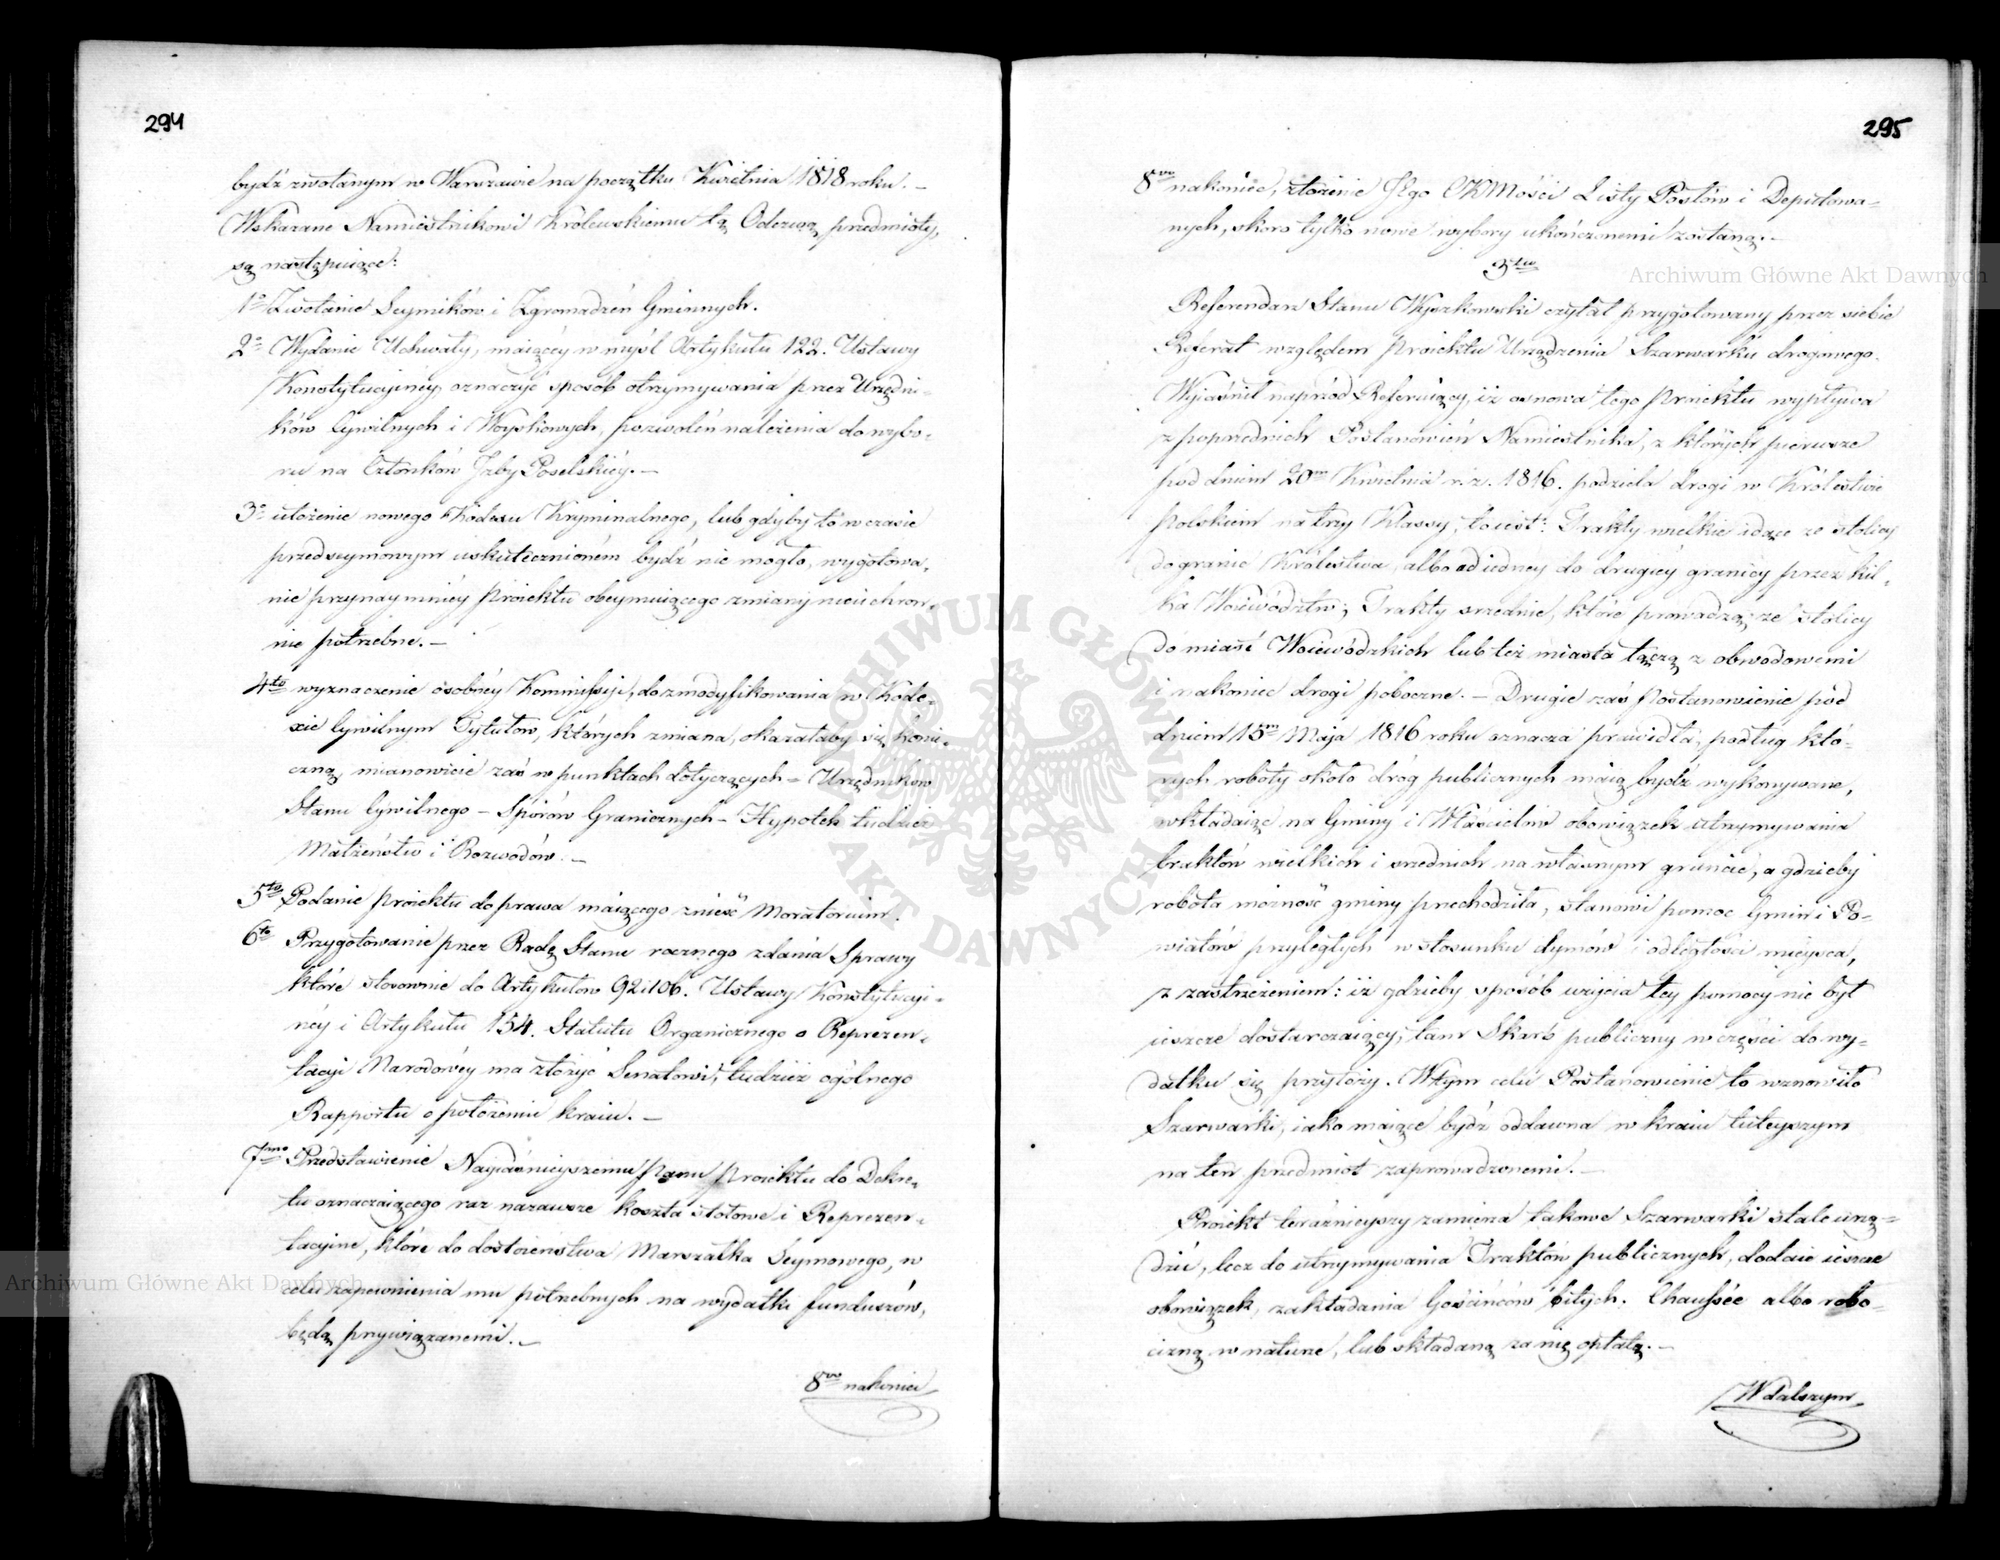 294
bydź zwołanym w Warszawie na początku Kwietnia 1818 roku. –
Wskazane Namiestnikowi Królewskiemu tą Odezwą przedmioty,
są następuiące:
1o Zwołanie Seymików i Zgromadzeń Gminnych.
2o Wydanie Uchwały, maiącey w myśl Artykułu 122. Ustawy
Konstytucyiney oznaczyć sposób otrzymywania przez Urzędni-
ków Cywilnych i Woyskowych, pozwoleń należenia do wybo-
ru na Członków Izby Poselskiéy. –
3o ułożenie nowego Kodexu Kryminalnego, lub gdyby to w czasie
przedseymowym uskutecznioném bydź nie mogło, wygotowa-
nie przynaymniéy Proiektu obeymuiącego zmiany nieuchron-
nie potrzebne. –
4to wyznaczenie osobnéy Kommissyi, do zmodyfikowania w Kode-
xie Cywilnym Tytułów, których zmiana, okazałaby się konie-
czną, mianowicie zaś w punktach dotyczących – Urzędników
Stanu Cywilnego – Sporów Granicznych – Hypotek tudzież
Małżeństw i Rozwodów. –
5to Podanie Proiektu do prawa maiącego znieść Moratorium.
6to Przygotowanie przez Radę Stanu rocznego zdania Sprawy
które stosownie do Artykułów 92 i 106. Ustawy Konstytucyi-
néy i Artykułu 154. Statutu Organicznego o Reprezen-
tacyi Narodowéy ma złożyć Senatowi, tudzież ogólnego
Rapportu o położeniu kraiu. –
7mo Przedstawienie Nayiaśnieyszemu Panu Proiektu do Dekre-
tu oznaczaiącego raz na zawsze koszta stołowe i Reprezen-
tacyine, które do dostoieństwa Marszałka Seymowego, w
celu zapewnienia mu potrzebnych na wydatki funduszów,
będą przywiązanemi. –
8vo nakoniec
295
8vo nakoniec, złożenie Jego CKMości Listy Posłów i Deputowa-
nych, skoro tylko nowe wybory ukończonemi zostaną. –
3tio
Referendarz Stanu Wyszkowski czytał przygotowany przez siebie
Referat względem Proiektu Urządzenia Szarwarku drogowego.
Wyiaśnił naprzód Referuiący, iż osnowa tego Proiektu wypływa
z poprzednich Postanowień Namiestnika, z których pierwsze
pod dniem 20m Kwietnia r. z. 1816. podziela drogi w Królestwie
Polskiem na trzy Klassy, to iest: Trakty wielkie idące ze stolicy
do granic Królestwa, albo od iedney do drugiéy granicy przez kil-
ka Woiewództw; Trakty srzednie, które prowadzą ze stolicy
do miast Woiewódzkich lub też miasta łączą z obwodowemi
i nakoniec drogi poboczne. – Drugie zaś Postanowienie pod
dniem 15m Maja 1816 roku oznacza prawidła, podług któ-
rych roboty około dróg publicznych maią bydź wykonywane,
wkładaiąc na Gminy i Właścicielów obowiązek utrzymywania
traktów wielkich i srednich na własnym gruncie, a gdzieby
robota możność gminy przechodziła, stanowi pomoc Gmin i Po-
wiatów przyległych w stosunku dymów i odległości mieysca,
z zastrzeżeniem: iż gdzieby sposób użycia tey pomocy nie był
ieszcze dostarczaiący, tam Skarb publiczny w części do wy-
datku się przyłoży. W tym celu Postanowienie to wznowiło
Szarwarki, iako maiące bydź oddawna w kraiu tuteyszym
na ten przedmiot zaprowadzonemi. –
Proiekt teraźnieyszy zamierza takowe Szarwarki stale urzą-
dzić, lecz do utrzymywania Traktów publicznych, dodaie ieszcze
obowiązek, zakładania Gościńców bitych. Chaussée albo robo-
cizną w naturze, lub składaną za nię opłatą. –
W dalszym
Archiwum Główne Akt Dawnych
Archiwum Główne Akt Dawnych
ARCHIWUM GŁÓWNE
AKT DAWNYCH